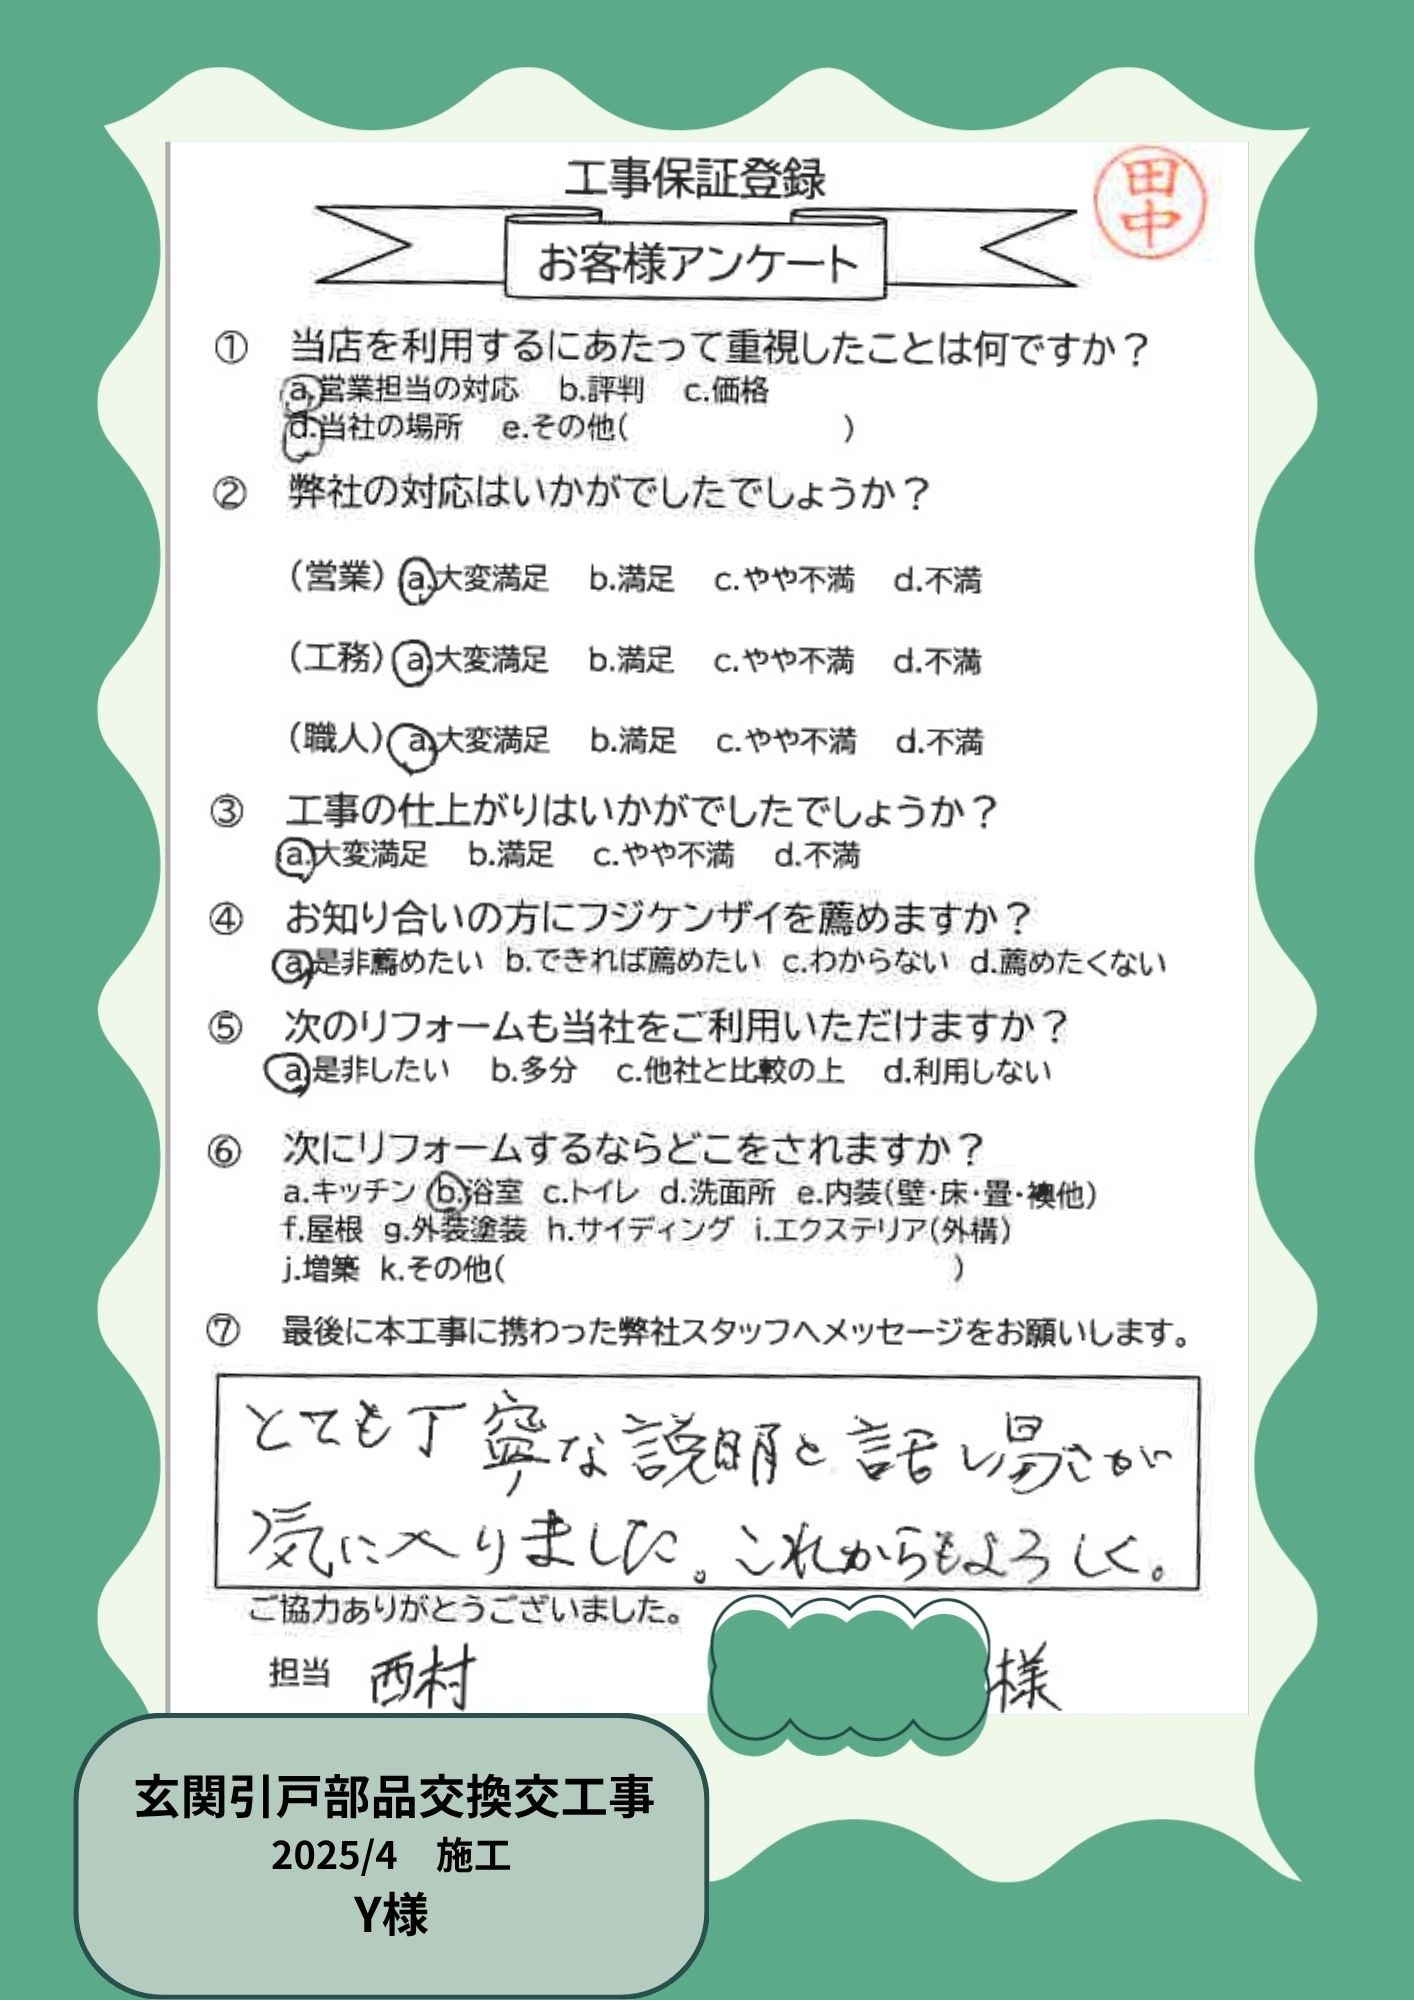 工事保証登録
田中
お客様アンケート
① 当店を利用するにあたって重視したことは何ですか？
a.営業担当の対応 b.評判 c.価格
d.当社の場所 e.その他( )
② 弊社の対応はいかがでしたでしょうか？
（営業） a.大変満足 b.満足 c.やや不満 d.不満
（工務） a.大変満足 b.満足 c.やや不満 d.不満
（職人） a.大変満足 b.満足 c.やや不満 d.不満
③ 工事の仕上がりはいかがでしたでしょうか？
a.大変満足 b.満足 c.やや不満 d.不満
④ お知り合いの方にフジケンザイを薦めますか？
a.是非薦めたい b.できれば薦めたい c.わからない d.薦めたくない
⑤ 次のリフォームも当社をご利用いただけますか？
a.是非したい b.多分 c.他社と比較の上 d.利用しない
⑥ 次にリフォームするならどこをされますか？
a.キッチン b.浴室 c.トイレ d.洗面所 e.内装(壁・床・畳・襖他)
f.屋根 g.外装塗装 h.サイディング i.エクステリア(外構)
j.増築 k.その他( )
⑦ 最後に本工事に携わった弊社スタッフへメッセージをお願いします。
とても丁寧な説明と話し易さが
気に入りました。これからもよろしく。
ご協力ありがとうございました。
担当 西村 様
玄関引戸部品交換交工事
2025/4 施工
Y様